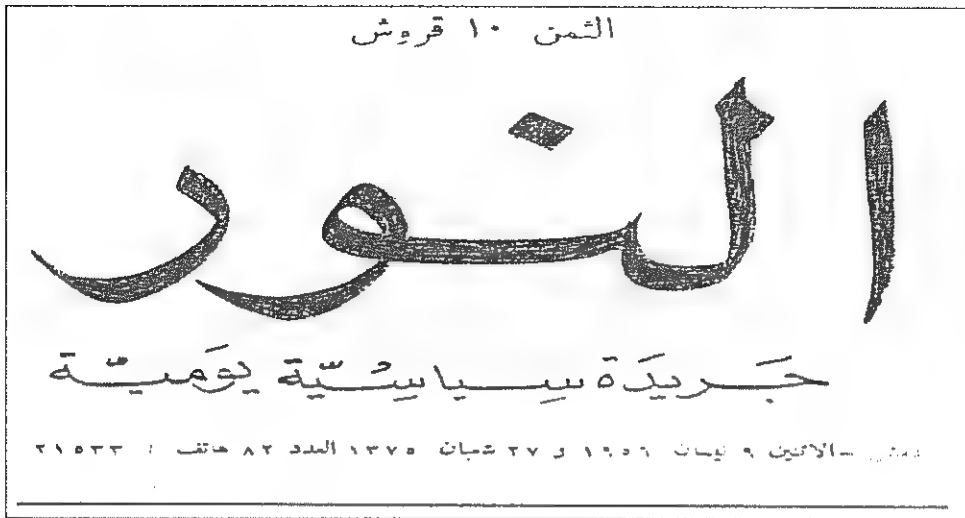 الثمن ١٠ قروش
النور
جَريدَة سِياسِيّة يوَميّة
دمشق - الاثنين ٩ نيسان ١٩٥٦ و ٢٧ شعبان ١٣٧٥ العدد ٨٢ هاتف / ٢١٥٣٣